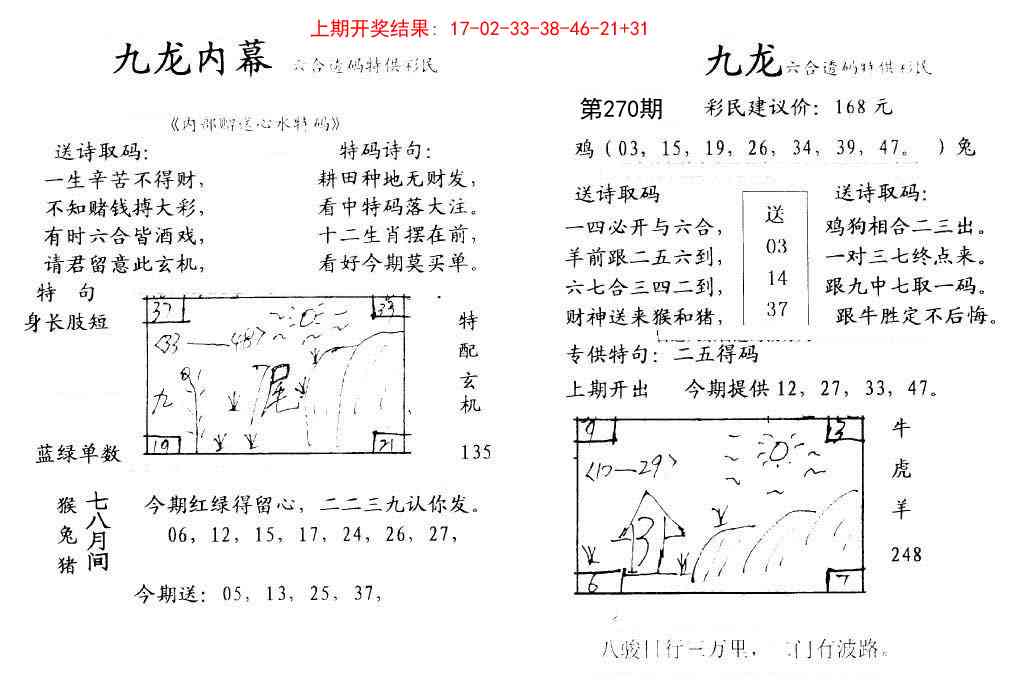 上期开奖结果：17-02-33-38-46-21+31
九龙内幕 六合透码特供彩民
《内部赠送心水特码》
送诗取码：
一生辛苦不得财，
不知赌钱搏大彩，
有时六合皆酒戏，
请君留意此玄机，
特码诗句：
耕田种地无财发，
看中特码落大注。
十二生肖摆在前，
看好今期莫买单。
特 句
身长肢短
蓝绿单数
37
33
<33——48>
九
尾
19
21
特
配
玄
机
135
猴
兔
猪
七八月间
今期红绿得留心，二二三九认你发。
06，12，15，17，24，26，27，
今期送：05，13，25，37，
九龙 六合透码特供彩民
第270期 彩民建议价：168元
鸡（03，15，19，26，34，39，47。）兔
送诗取码
一四必开与六合，
羊前跟二五六到，
六七合三四二到，
财神送来猴和猪，
送
03
14
37
送诗取码：
鸡狗相合二三出。
一对三七终点来。
跟九中七取一码。
跟牛胜定不后悔。
专供特句：二五得码
上期开出 今期提供12，27，33，47。
9
3
3
6
7
牛
虎
羊
248
八骏日行三万里，门有波路。